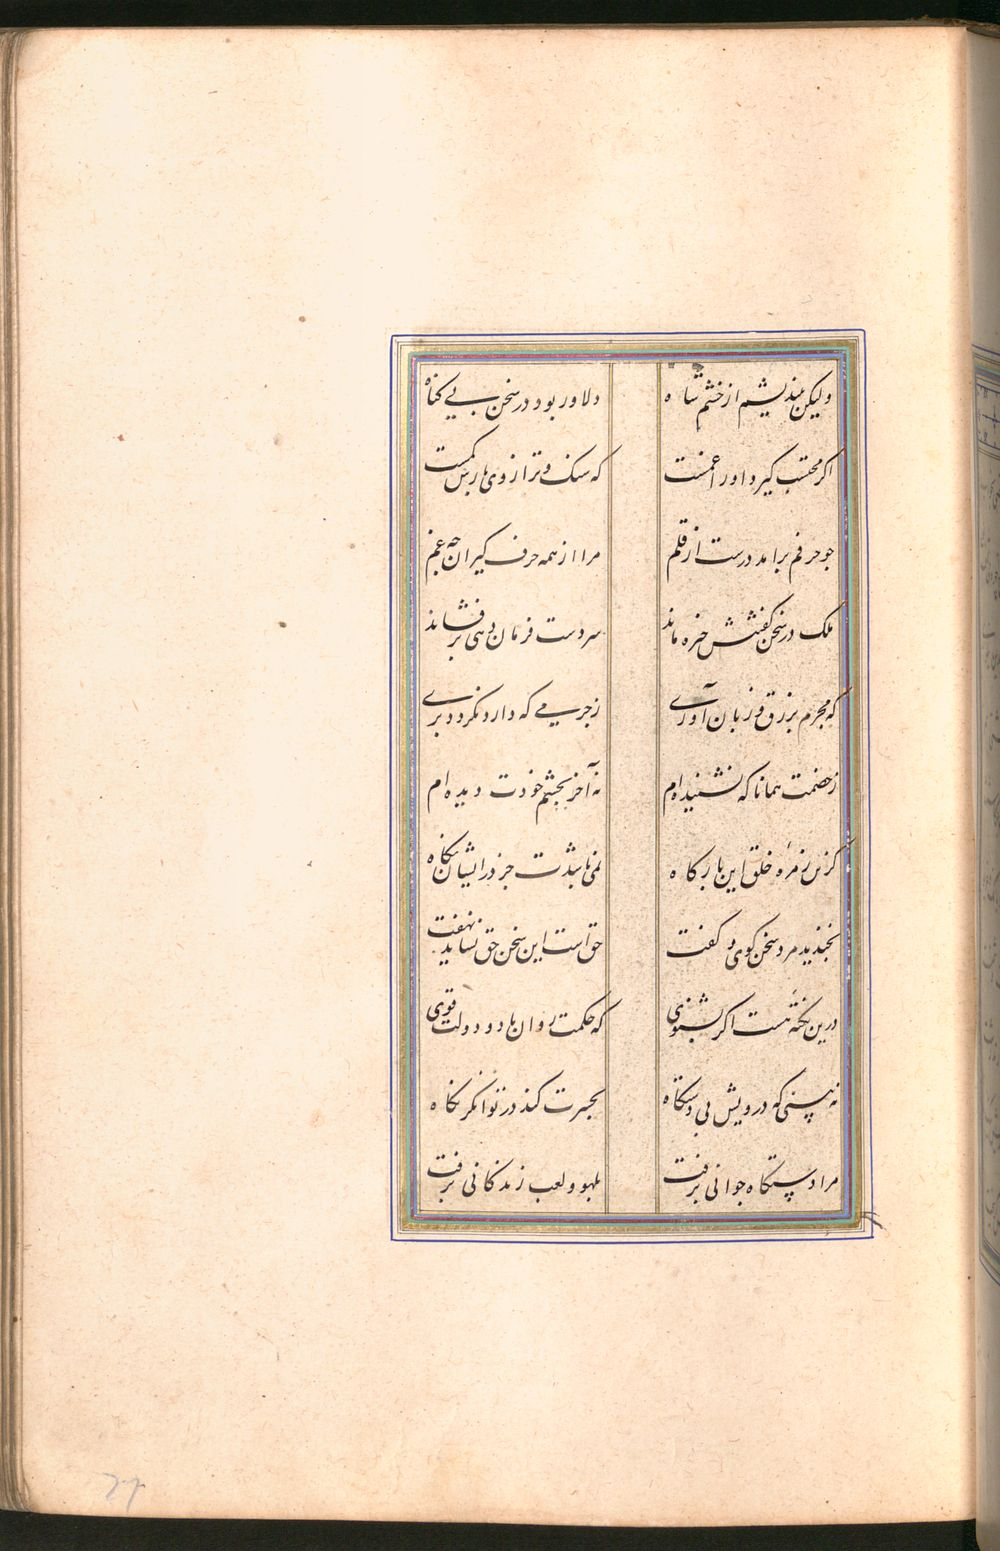 ولیکن نیندیشم از خشم شاه دلاور بود در سخن بی کناه
اکر محتسب کیرد اورا غمست که سنک و ترازوی بارش کمست
جو حرفم برامد درست از قلم مرا از همه حرف کیران چه غم
ملک در سخن کفتنش خیره ماند سر دست فرمان دهی بر فشاند
که مجرم بزرق و زبان آوری ز جرمی که دارد نکردد بری
ز خصمت همانا که نشنیده‌ام نه آخر بچشم خودت دیده ام
کزین زمرهٔ خلق این بارکاه نمی باشدت جز در ایشان نکاه
بخندید مرد سخن کوی و کفت حق است این سخن حق نشاید نهفت
درین نکته هست اکر بشنوی که حکمت روان باد و دولت قوی
نه بینی که درویش بی دستکاه بحسرت کند در توانکر نکاه
مرا دستکاه جوانی برفت بلهو و لعب زندکانی برفت
27